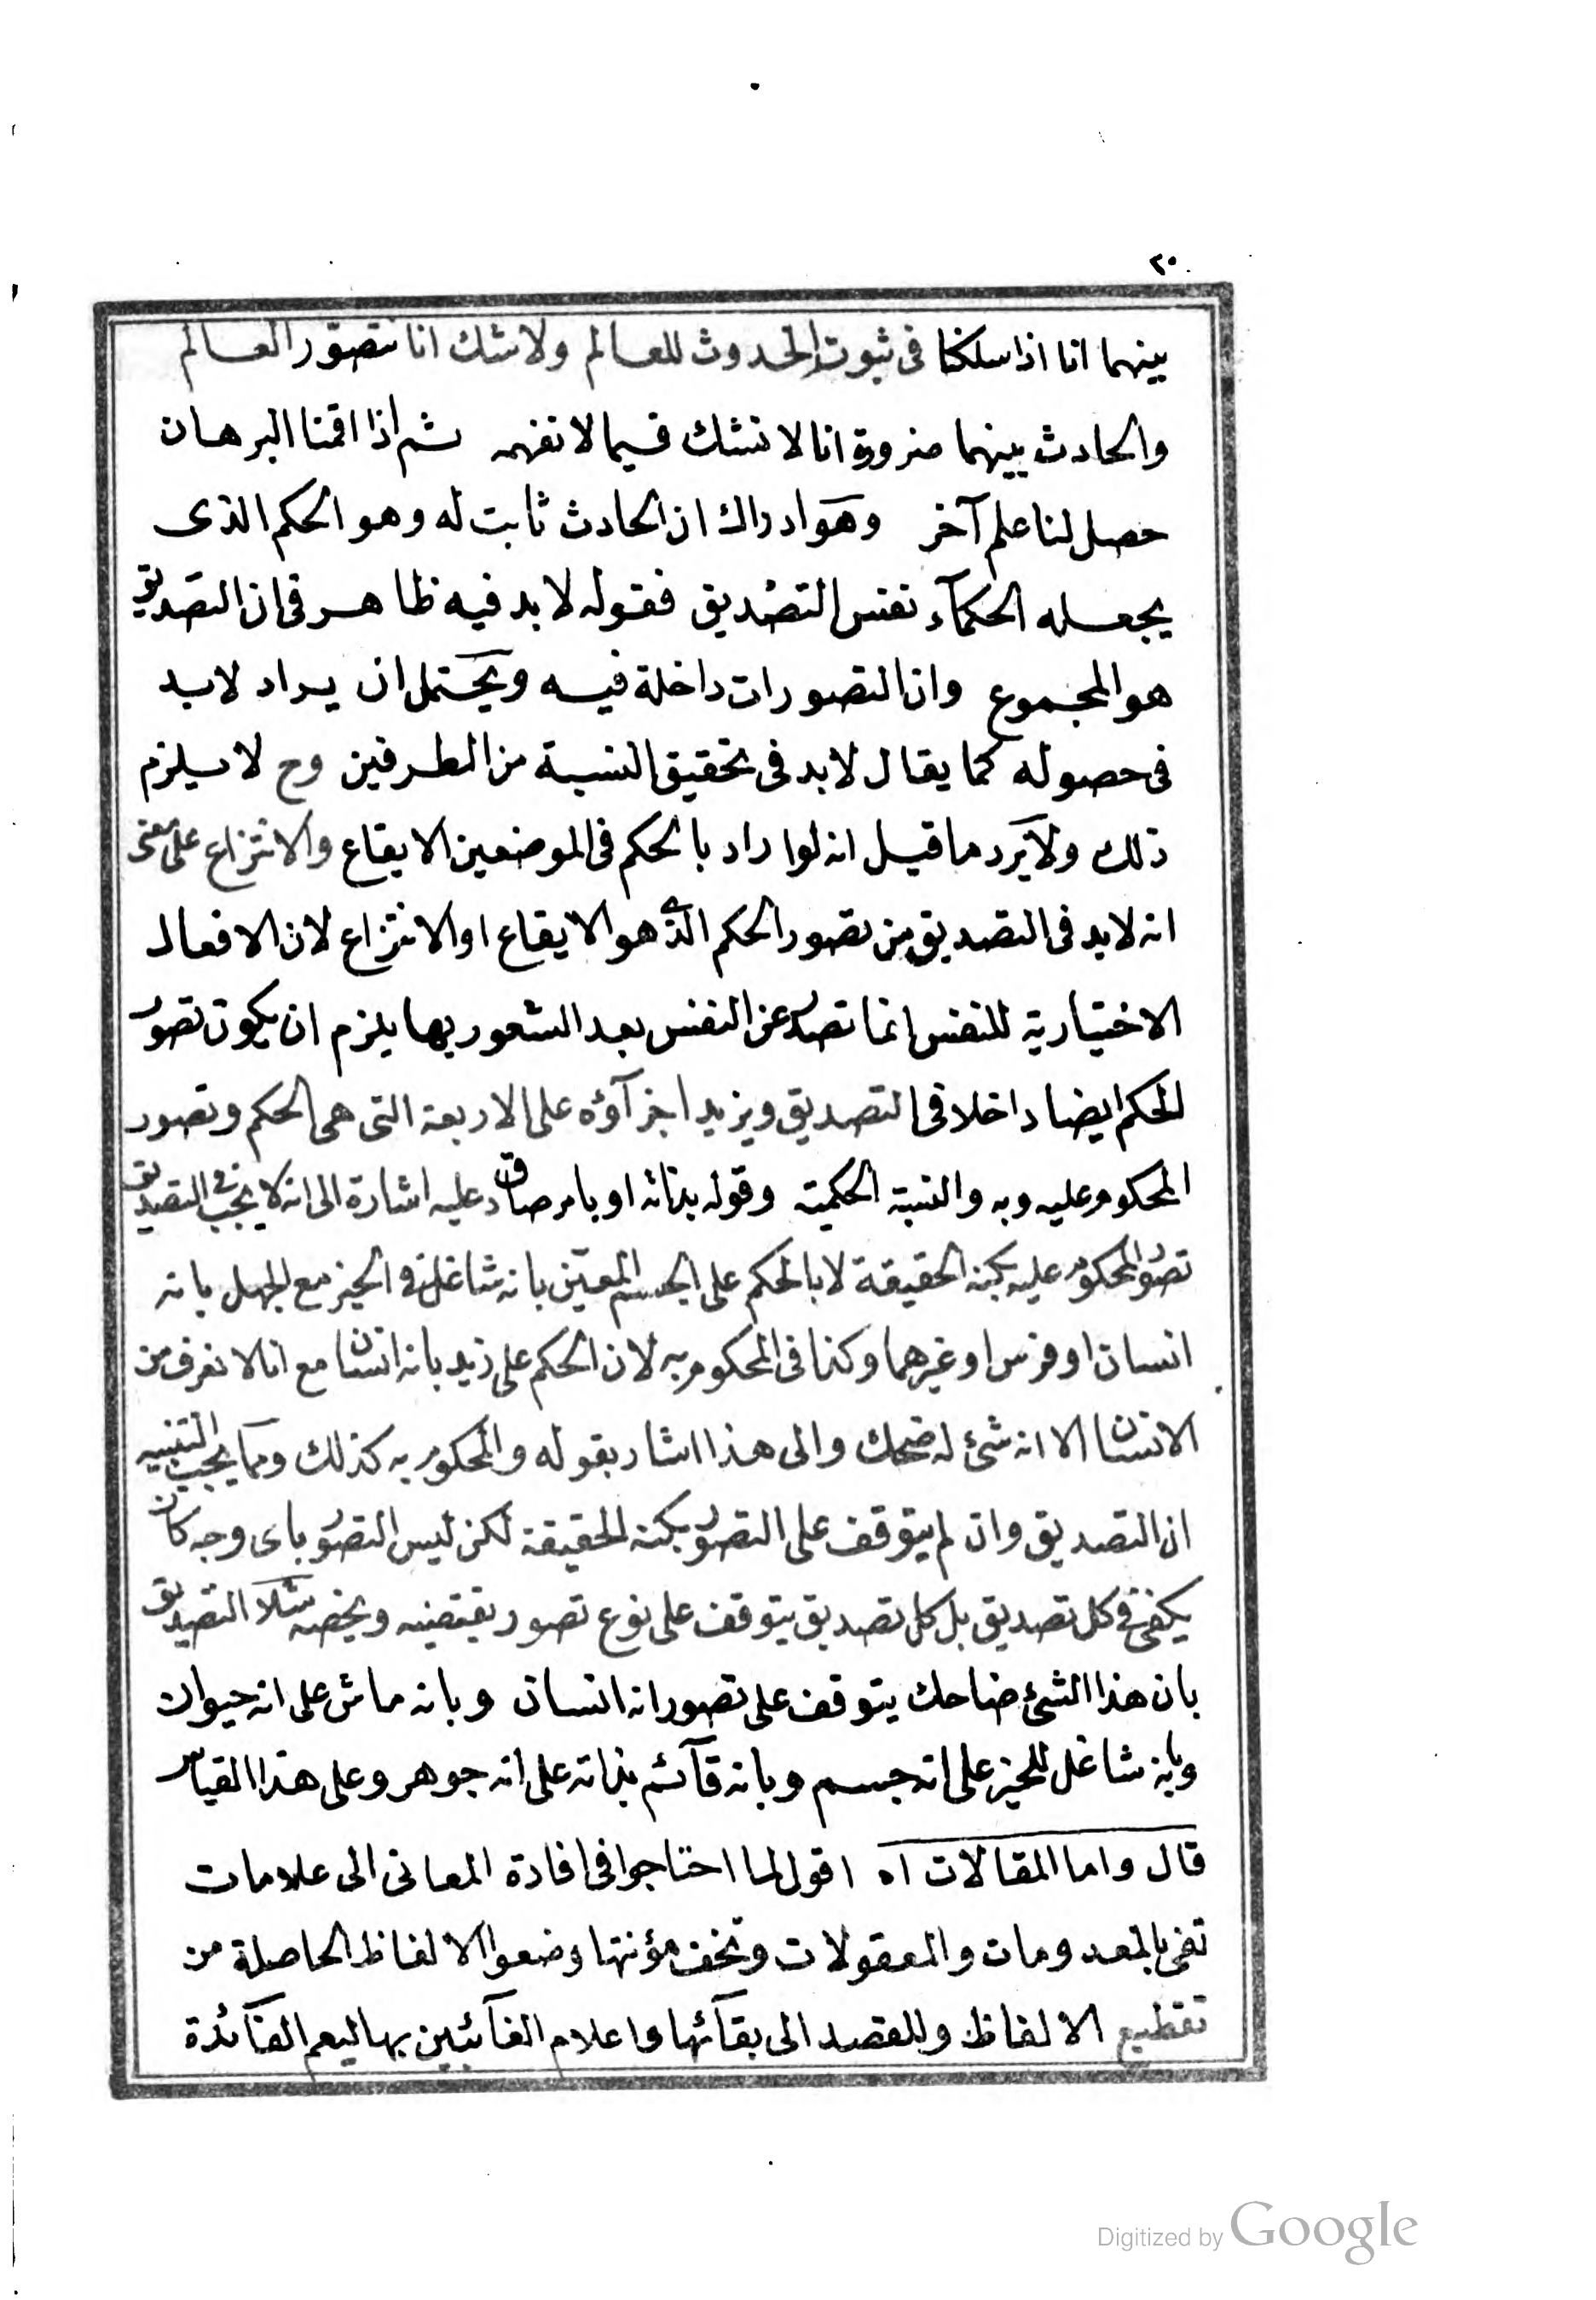 ٢٠
بينهما انا اذا سلكنا فى ثبوت الحدوث للعالم ولا شك انا نتصوّر العالم
والحادث بينهما ضرورة انا لا نشك فيما لا نفهمه ثم اذا اقمنا البرهان
حصل لنا علم آخر وهو ادراك ان الحادث ثابت له وهو الحكم الذى
يجعله الحكمآء نفس التصديق فقوله لا بد فيه ظاهر فى ان التصديق
هو المجموع وان التصورات داخلة فيه ويحتمل ان يراد لابد
فى حصوله كما يقال لا بد فى تحقيق النسبة من الطرفين وح لا يلزم
ذلك ولا يرد ما قيل انه لو اراد بالحكم فى الموضعين الايقاع والانتزاع على معنى
انه لا بد فى التصديق من تصور الحكم الذى هو الايقاع او الانتزاع لان الافعال
الاختيارية للنفس انما تصدر عن النفس بعد الشعور بها يلزم ان يكون تصور
الحكم ايضا داخلا فى التصديق ويزيد اجزآؤه على الاربعة التى هى الحكم وتصور
المحكوم عليه وبه والنسبة الحكمية وقوله بذاته او بامر صادق عليه اشارة الى انه لا يجب فى التصديق
تصور المحكوم عليه بكنه الحقيقة لا بالحكم على الجسم المعيّن بانه شاغل فى الحيز مع الجهل بانه
انسان او فرس او غيرهما وكذا فى المحكوم به لان الحكم على زيد بانه انسان مع انا لا نعرف من
الانسان الا انه شئ له ضحك والى هذا اشار بقوله والمحكوم به كذلك ومما يجب التنبيه
ان التصديق وان لم يتوقف على التصور بكنه الحقيقة لكن ليس التصور باى وجه كان
يكفى فى كل تصديق بل كل تصديق يتوقف على نوع تصور يقتضيه ويخصه مثلا التصديق
بان هذا الشئ ضاحك يتوقف على تصور انه انسان وبانه ماش على انه حيوان
وبانه شاغل للحيز على انه جسم وبانه قآئم بذاته على انه جوهر وعلى هذا القياس
قال واما المقالات اه اقول لما احتاجوا فى افادة المعانى الى علامات
تفى بالمعدومات والمعقولات وتخف مؤنتها وضعوا الالفاظ الحاصلة من
تقطيع الالفاظ وللقصد الى بقآئها واعلام الغآئبين بها ليعم الفآئدة
Digitized by Google